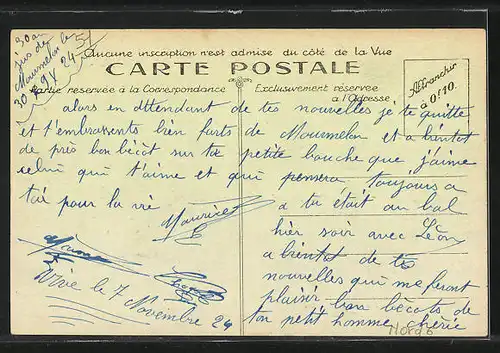 Aucune inscription n'est admise du côté de la Vue
CARTE POSTALE
Partie réservée à la Correspondance
Exclusivement réservée à l'Adresse
Affranchir à 0f10.
alors en attendant de tes nouvelles je te quitte
et t'embrassents bien forts de Mourmelon et a bientot
de près bon bécôt sur ta petite bouche que j'aime
celui qui t'aime et qui pensera toujours a
toi pour la vie
Maurice
tu était au bal
hier soir avec Léon
a bientot de tes
nouvelles qui me feront
plaisir bon bécots de
ton petit homme chérie
le 7 Novembre 24